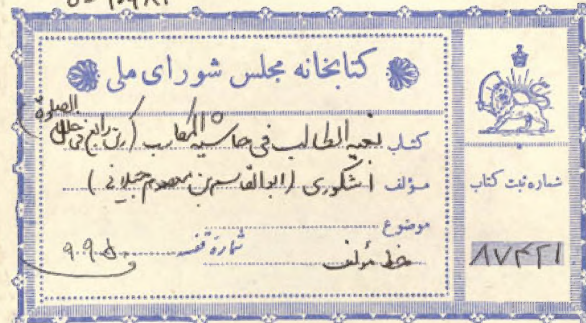 کتابخانه مجلس شورای ملی
الصلوة
کتاب بغیه الطالب فی حاشیه المکاسب (رکن رابع فی خلل
مؤلف اشکوری (ابوالقاسم بن معصوم جیلانی)
موضوع
خطی مؤلف شماره قفسه ۹۹۵۰
شماره ثبت کتاب
۸۷۴۲۱